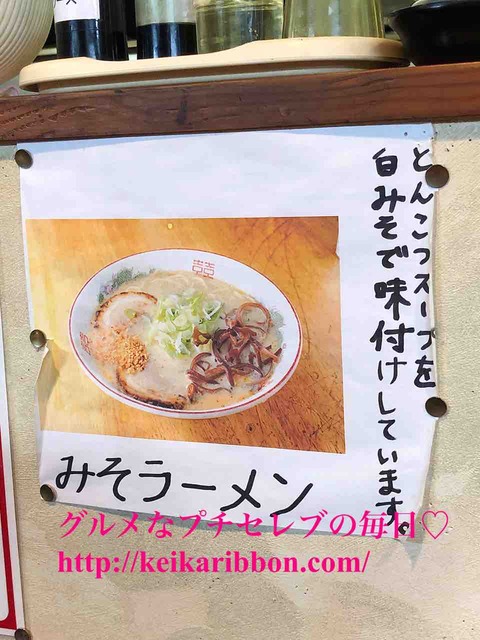 とんこつスープを
白みそで味付けしています。
みそラーメン
グルメなプチセレブの毎日♡
http://keikaribbon.com/